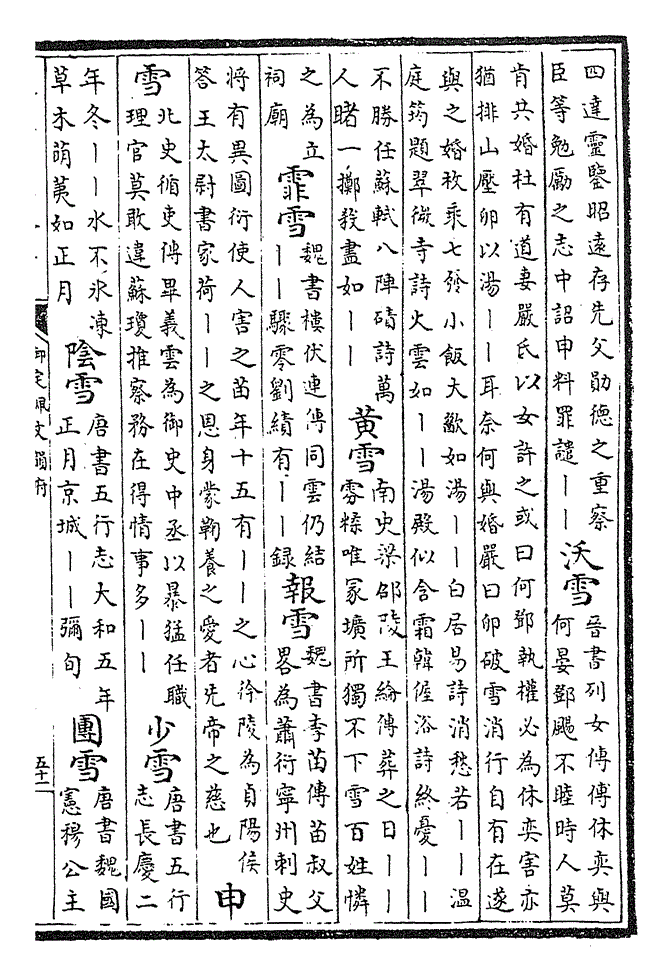 四達靈鑒昭遠存先父勛德之重察
臣等勉勵之志中詔申料罪譴｜｜
沃雪
晉書列女傳傅休奕與
何晏鄧颺不睦時人莫
肯共婚杜有道妻嚴氏以女許之或曰何鄧執權必為休奕害亦
猶排山壓卵以湯｜｜耳奈何與婚嚴曰卵破雪消行自有在遂
與之婚枚乘七發小飯大歠如湯｜｜白居易詩消愁若｜｜溫
庭筠題翠微寺詩火雲如｜｜湯殿似含霜韓偓浴詩終憂｜｜
不勝任蘇軾八陣磧詩萬
人賭一擲殺盡如｜｜
黃雪
南史梁邵陵王綸傳葬之日｜｜
雰糅唯冢壙所獨不下雪百姓憐
之為立
祠廟
霏雪
魏書樓伏連傳同雲仍結
｜｜驟零劉績有｜｜錄
報雪
魏書李苗傳苗叔父
畧為蕭衍寧州刺史
將有異圖衍使人害之苗年十五有｜｜之心徐陵為貞陽侯
答王太尉書家荷｜｜之恩身蒙鞠養之愛者先帝之慈也
申
雪
北史循吏傳畢義雲為御史中丞以暴猛任職
理官莫敢違蘇瓊推察務在得情事多｜｜
少雪
唐書五行
志長慶二
年冬｜｜水不冰凍
草木萌荑如正月
陰雪
唐書五行志大和五年
正月京城｜｜彌旬
團雪
唐書魏國
憲穆公主
御定佩文韻府